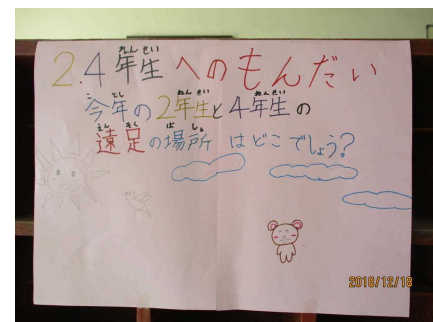 2.4年生へのもんだい
今年の2年生と4年生の
遠足の場所はどこでしょう?
2018/12/18